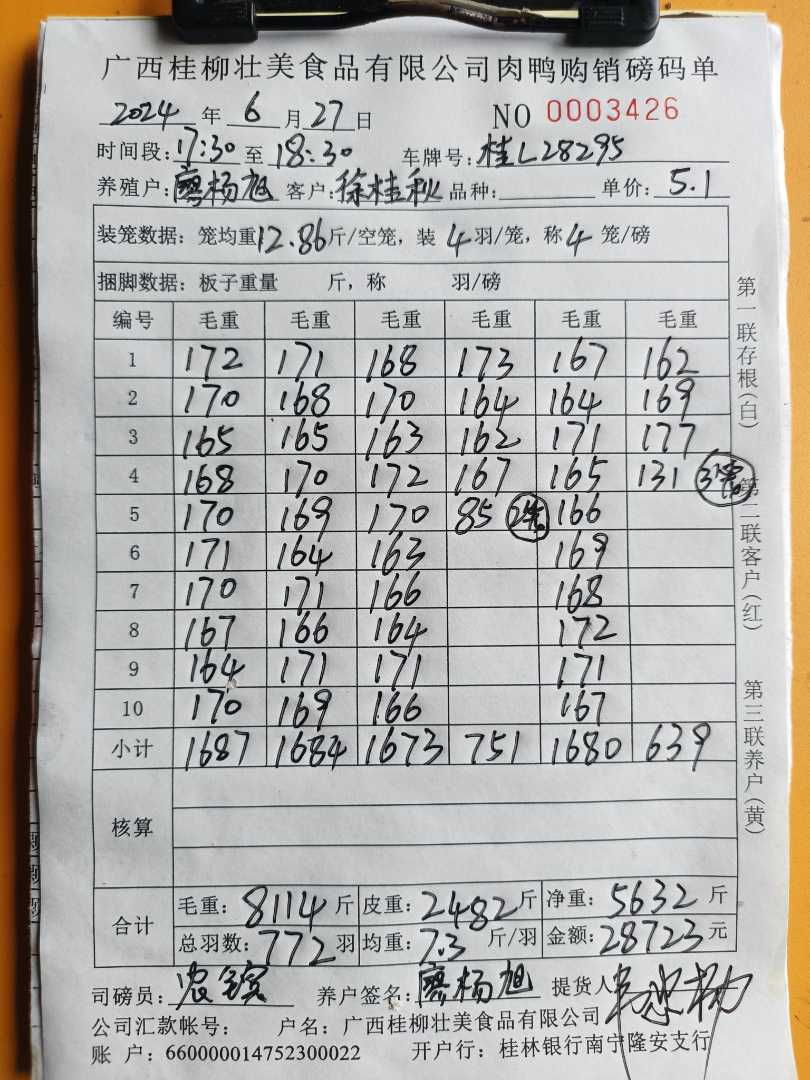 广西桂柳壮美食品有限公司肉鸭购销磅码单
2024 年 6 月 27 日 NO 0003426
时间段: 17:30 至 18:30 车牌号: 桂L28295
养殖户: 廖杨旭 客户: 徐桂秋 品种: 单价: 5.1
装笼数据: 笼均重12.86斤/空笼, 装 4 羽/笼, 称 4 笼/磅
捆脚数据: 板子重量 斤, 称 羽/磅
编号 毛重 毛重 毛重 毛重 毛重 毛重
1 172 171 168 173 167 162
2 170 168 170 164 164 169
3 165 165 163 162 171 177
4 168 170 172 167 165 131 3笼
5 170 169 170 85 2笼 166
6 171 164 163 169
7 170 171 166 168
8 167 166 164 172
9 164 171 171 171
10 170 169 166 167
小计 1687 1684 1673 751 1680 639
核算
合计 毛重: 8114 斤 皮重: 2482 斤 净重: 5632 斤
总羽数: 772 羽 均重: 7.3 斤/羽 金额: 28723 元
司磅员: 养户签名: 廖杨旭 提货人
公司汇款帐号: 户名: 广西桂柳壮美食品有限公司
账 户: 660000014752300022 开户行: 桂林银行南宁隆安支行
第一联存根(白)
第二联客户(红)
第三联养户(黄)